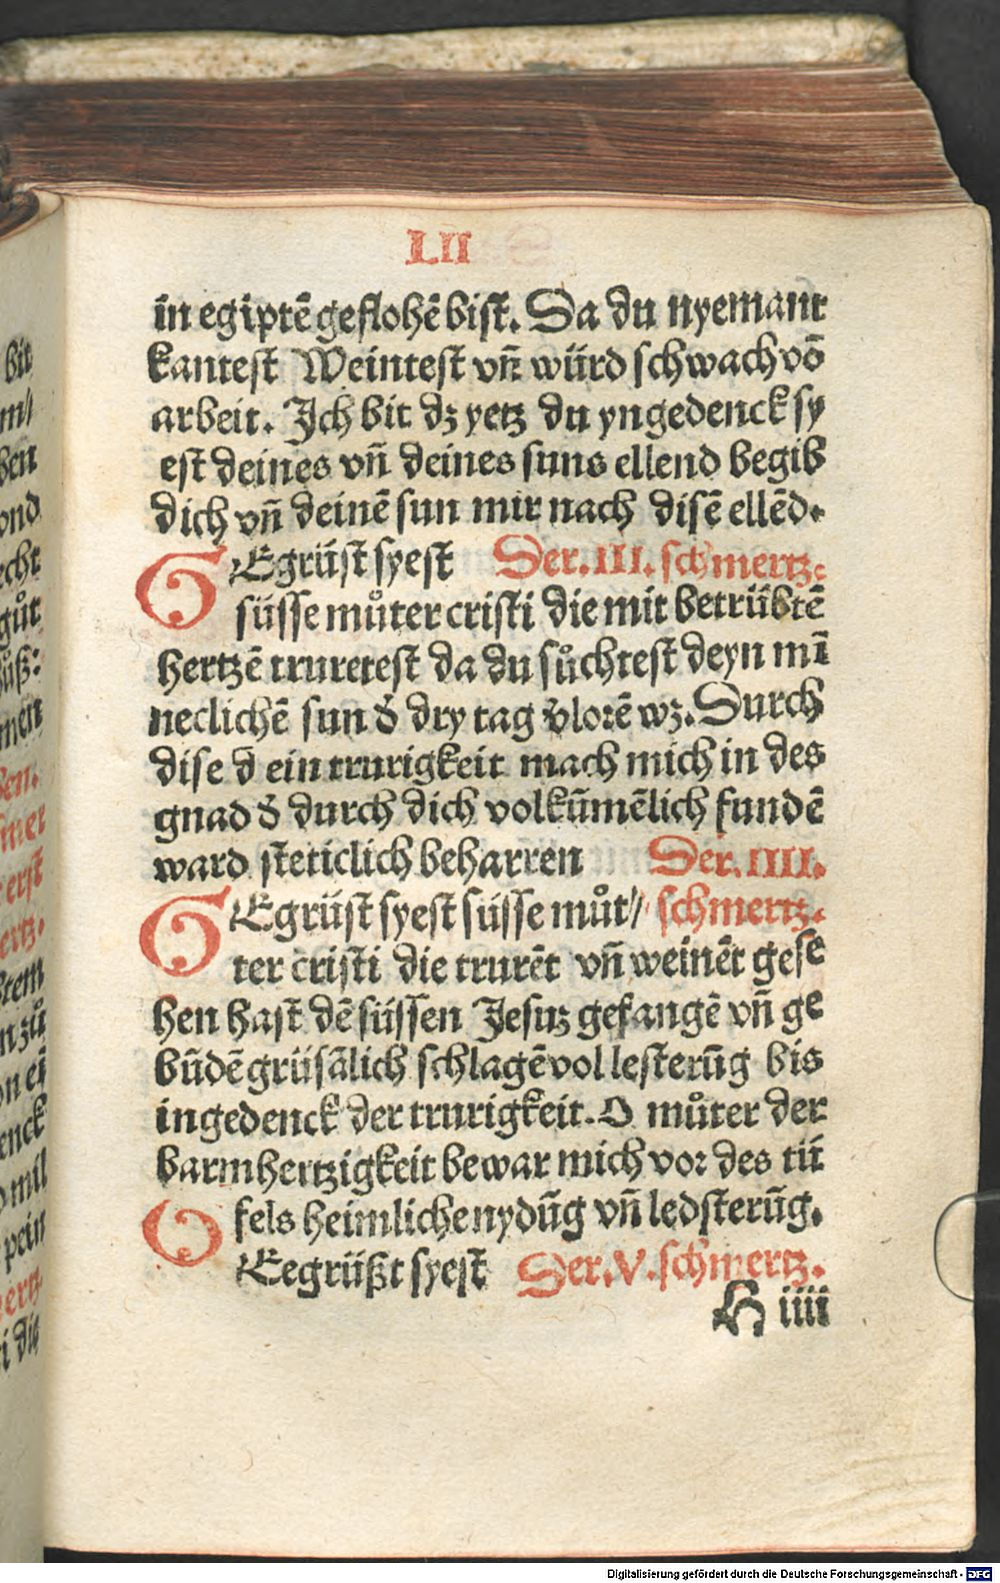 LII
in egiptē geflohē bist. Da du nyemant
kantest Weintest vñ würd schwach vō
arbeit. Ich bit dz yetz du yngedenck sy
est deines vñ deines suns ellend begib
dich vñ deinē sun mir nach disē ellēd.
GEgrüst syest Der. III. schmertz.
süsse můter cristi die mit betrübtē
hertzē truretest da du sůchtest deyn mī
neclichē sun d̕ dry tag v̕lorē wz. Durch
dise d̄ ein trurigkeit mach mich in des
gnad d̕ durch dich volkūmēlich fundē
ward steticlich beharren Der. IIII.
GEgrüst syest süsse můt// schmertz.
ter cristi die trurēt vñ weinēt gese
hen hast dē süssen Jesuz gefangē vñ ge
būdē grüsālich schlagē vol lesterūg bis
ingedenck der trurigkeit. O můter der
barmhertzigkeit bewar mich vor des tü
fels heimliche nydūg vñ ledsterūg.
GEegrüßt syest Der. V. schmertz.
H iiii
bit
m//
ben
ond
echt
gůt
ůß:
men
sen.
mer
erst
ertz.
stem
n zů
on ei
enck
mil
pein
ertz.
i die
Digitalisierung gefördert durch die Deutsche Forschungsgemeinschaft - DFG